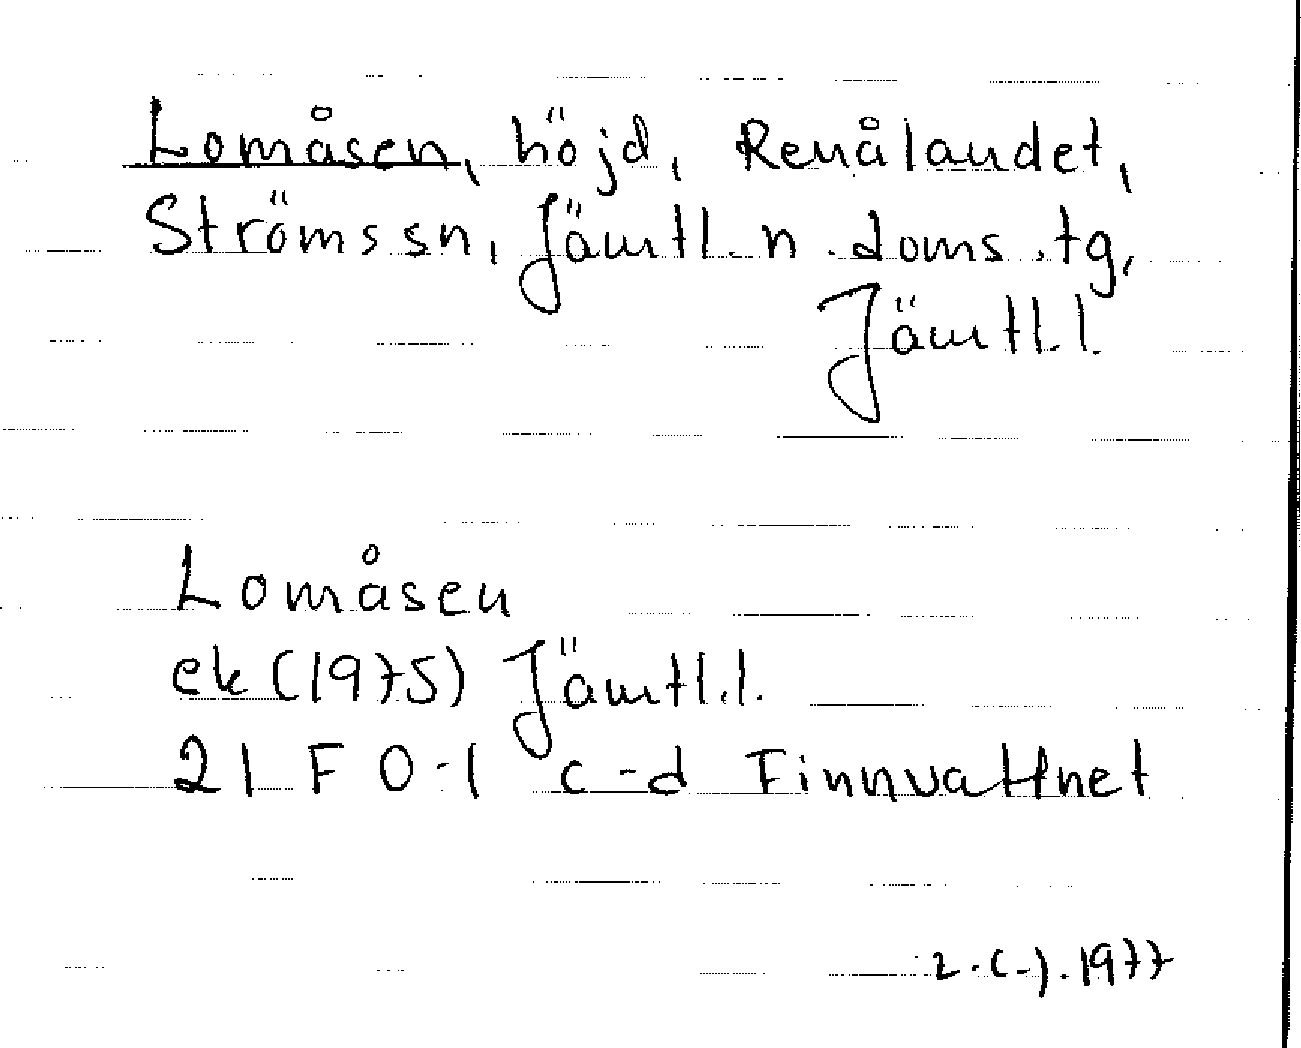 Lomåsen, höjd, Renålandet,
Ströms sn, Jämtl. n. doms. tg,
Jämtl. l.
Lomåsen
ek (1975) Jämtl. l.
21 F 0-1 c-d Finnvattnet
2.(-).1977